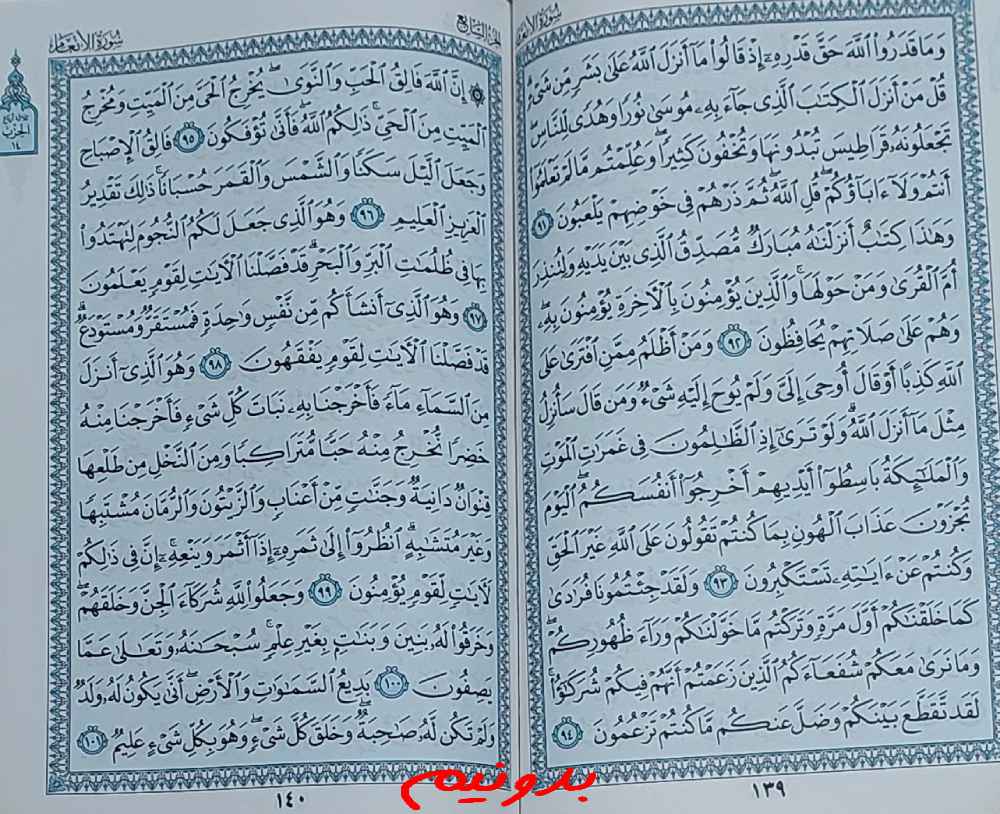 سورة الأنعام
وَمَا قَدَرُوا۟ ٱللَّهَ حَقَّ قَدْرِهِۦٓ إِذْ قَالُوا۟ مَآ أَنزَلَ ٱللَّهُ عَلَىٰ بَشَرٍ مِّن شَىْءٍ
قُلْ مَنْ أَنزَلَ ٱلْكِتَٰبَ ٱلَّذِى جَآءَ بِهِۦ مُوسَىٰ نُورًا وَهُدًى لِّلنَّاسِ
تَجْعَلُونَهُۥ قَرَاطِيسَ تُبْدُونَهَا وَتُخْفُونَ كَثِيرًا وَعُلِّمْتُم مَّا لَمْ تَعْلَمُوٓا۟
أَنتُمْ وَلَآ ءَابَآؤُكُمْ قُلِ ٱللَّهُ ثُمَّ ذَرْهُمْ فِى خَوْضِهِمْ يَلْعَبُونَ ٩١
وَهَٰذَا كِتَٰبٌ أَنزَلْنَٰهُ مُبَارَكٌ مُّصَدِّقُ ٱلَّذِى بَيْنَ يَدَيْهِ وَلِتُنذِرَ
أُمَّ ٱلْقُرَىٰ وَمَنْ حَوْلَهَا وَٱلَّذِينَ يُؤْمِنُونَ بِٱلْءَاخِرَةِ يُؤْمِنُونَ بِهِۦ
وَهُمْ عَلَىٰ صَلَاتِهِمْ يُحَافِظُونَ ٩٢ وَمَنْ أَظْلَمُ مِمَّنِ ٱفْتَرَىٰ عَلَى
ٱللَّهِ كَذِبًا أَوْ قَالَ أُوحِىَ إِلَىَّ وَلَمْ يُوحَ إِلَيْهِ شَىْءٌ وَمَن قَالَ سَأُنزِلُ
مِثْلَ مَآ أَنزَلَ ٱللَّهُ وَلَوْ تَرَىٰٓ إِذِ ٱلظَّٰلِمُونَ فِى غَمَرَٰتِ ٱلْمَوْتِ
وَٱلْمَلَٰٓئِكَةُ بَاسِطُوٓا۟ أَيْدِيهِمْ أَخْرِجُوٓا۟ أَنفُسَكُمُ ٱلْيَوْمَ
تُجْزَوْنَ عَذَابَ ٱلْهُونِ بِمَا كُنتُمْ تَقُولُونَ عَلَى ٱللَّهِ غَيْرَ ٱلْحَقِّ
وَكُنتُمْ عَنْ ءَايَٰتِهِۦ تَسْتَكْبِرُونَ ٩٣ وَلَقَدْ جِئْتُمُونَا فُرَٰدَىٰ
كَمَا خَلَقْنَٰكُمْ أَوَّلَ مَرَّةٍ وَتَرَكْتُم مَّا خَوَّلْنَٰكُمْ وَرَآءَ ظُهُورِكُمْ
وَمَا نَرَىٰ مَعَكُمْ شُفَعَآءَكُمُ ٱلَّذِينَ زَعَمْتُمْ أَنَّهُمْ فِيكُمْ شُرَكَٰٓؤُا۟
لَقَد تَّقَطَّعَ بَيْنَكُمْ وَضَلَّ عَنكُم مَّا كُنتُمْ تَزْعُمُونَ ٩٤
١٣٩
الجزء السابع
سورة الأنعام
إِنَّ ٱللَّهَ فَالِقُ ٱلْحَبِّ وَٱلنَّوَىٰ يُخْرِجُ ٱلْحَىَّ مِنَ ٱلْمَيِّتِ وَمُخْرِجُ
ٱلْمَيِّتِ مِنَ ٱلْحَىِّ ذَٰلِكُمُ ٱللَّهُ فَأَنَّىٰ تُؤْفَكُونَ ٩٥ فَالِقُ ٱلْإِصْبَاحِ
وَجَعَلَ ٱلَّيْلَ سَكَنًا وَٱلشَّمْسَ وَٱلْقَمَرَ حُسْبَانًا ذَٰلِكَ تَقْدِيرُ
ٱلْعَزِيزِ ٱلْعَلِيمِ ٩٦ وَهُوَ ٱلَّذِى جَعَلَ لَكُمُ ٱلنُّجُومَ لِتَهْتَدُوا۟
بِهَا فِى ظُلُمَٰتِ ٱلْبَرِّ وَٱلْبَحْرِ قَدْ فَصَّلْنَا ٱلْءَايَٰتِ لِقَوْمٍ يَعْلَمُونَ
٩٧ وَهُوَ ٱلَّذِىٓ أَنشَأَكُم مِّن نَّفْسٍ وَٰحِدَةٍ فَمُسْتَقَرٌّ وَمُسْتَوْدَعٌ
قَدْ فَصَّلْنَا ٱلْءَايَٰتِ لِقَوْمٍ يَفْقَهُونَ ٩٨ وَهُوَ ٱلَّذِىٓ أَنزَلَ
مِنَ ٱلسَّمَآءِ مَآءً فَأَخْرَجْنَا بِهِۦ نَبَاتَ كُلِّ شَىْءٍ فَأَخْرَجْنَا مِنْهُ
خَضِرًا نُّخْرِجُ مِنْهُ حَبًّا مُّتَرَاكِبًا وَمِنَ ٱلنَّخْلِ مِن طَلْعِهَا
قِنْوَانٌ دَانِيَةٌ وَجَنَّٰتٍ مِّنْ أَعْنَابٍ وَٱلزَّيْتُونَ وَٱلرُّمَّانَ مُشْتَبِهًا
وَغَيْرَ مُتَشَٰبِهٍ ٱنظُرُوٓا۟ إِلَىٰ ثَمَرِهِۦٓ إِذَآ أَثْمَرَ وَيَنْعِهِۦٓ إِنَّ فِى ذَٰلِكُمْ
لَءَايَٰتٍ لِّقَوْمٍ يُؤْمِنُونَ ٩٩ وَجَعَلُوا۟ لِلَّهِ شُرَكَآءَ ٱلْجِنَّ وَخَلَقَهُمْ
وَخَرَقُوا۟ لَهُۥ بَنِينَ وَبَنَٰتٍۭ بِغَيْرِ عِلْمٍ سُبْحَٰنَهُۥ وَتَعَٰلَىٰ عَمَّا
يَصِفُونَ ١٠٠ بَدِيعُ ٱلسَّمَٰوَٰتِ وَٱلْأَرْضِ أَنَّىٰ يَكُونُ لَهُۥ وَلَدٌ
وَلَمْ تَكُن لَّهُۥ صَٰحِبَةٌ وَخَلَقَ كُلَّ شَىْءٍ وَهُوَ بِكُلِّ شَىْءٍ عَلِيمٌ ١٠١
١٤٠
الحزب
١٤
بدونیم